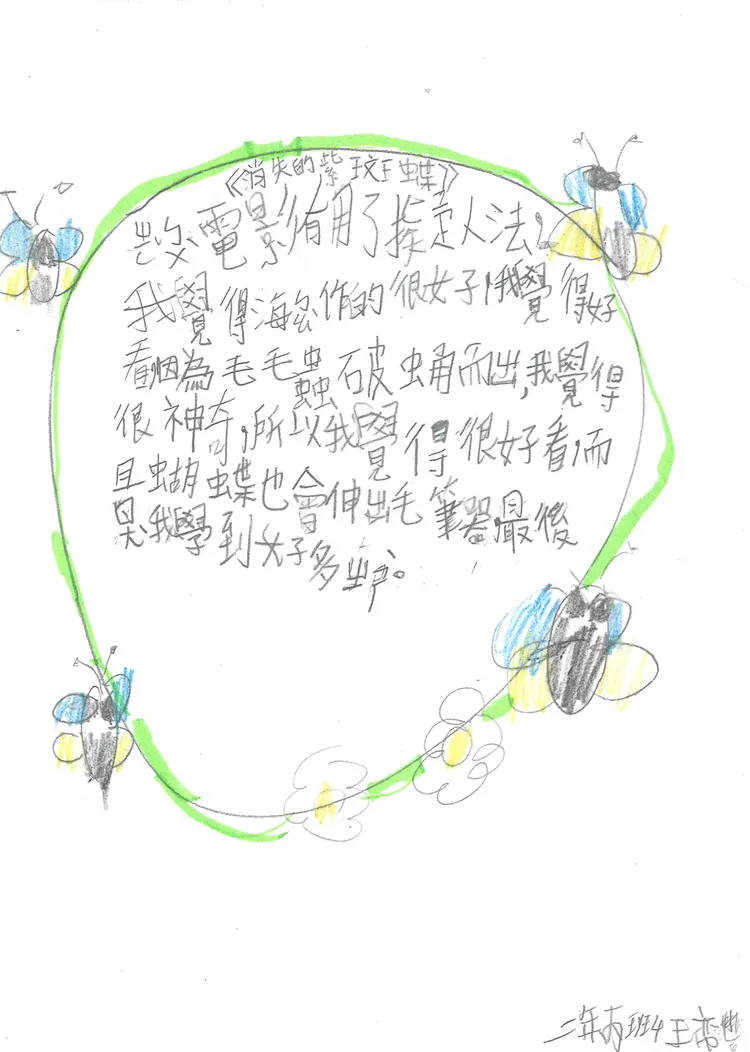 《消失的紫斑蝶》
電影有用了擬人法,
我覺得海作的很好,我覺得好
看,因為毛毛蟲破蛹而出,我覺得
很神奇,所以我覺得很好看,而
且蝴蝶也會伸出毛筆器,最後
我學到好多。
二年丙班4 王